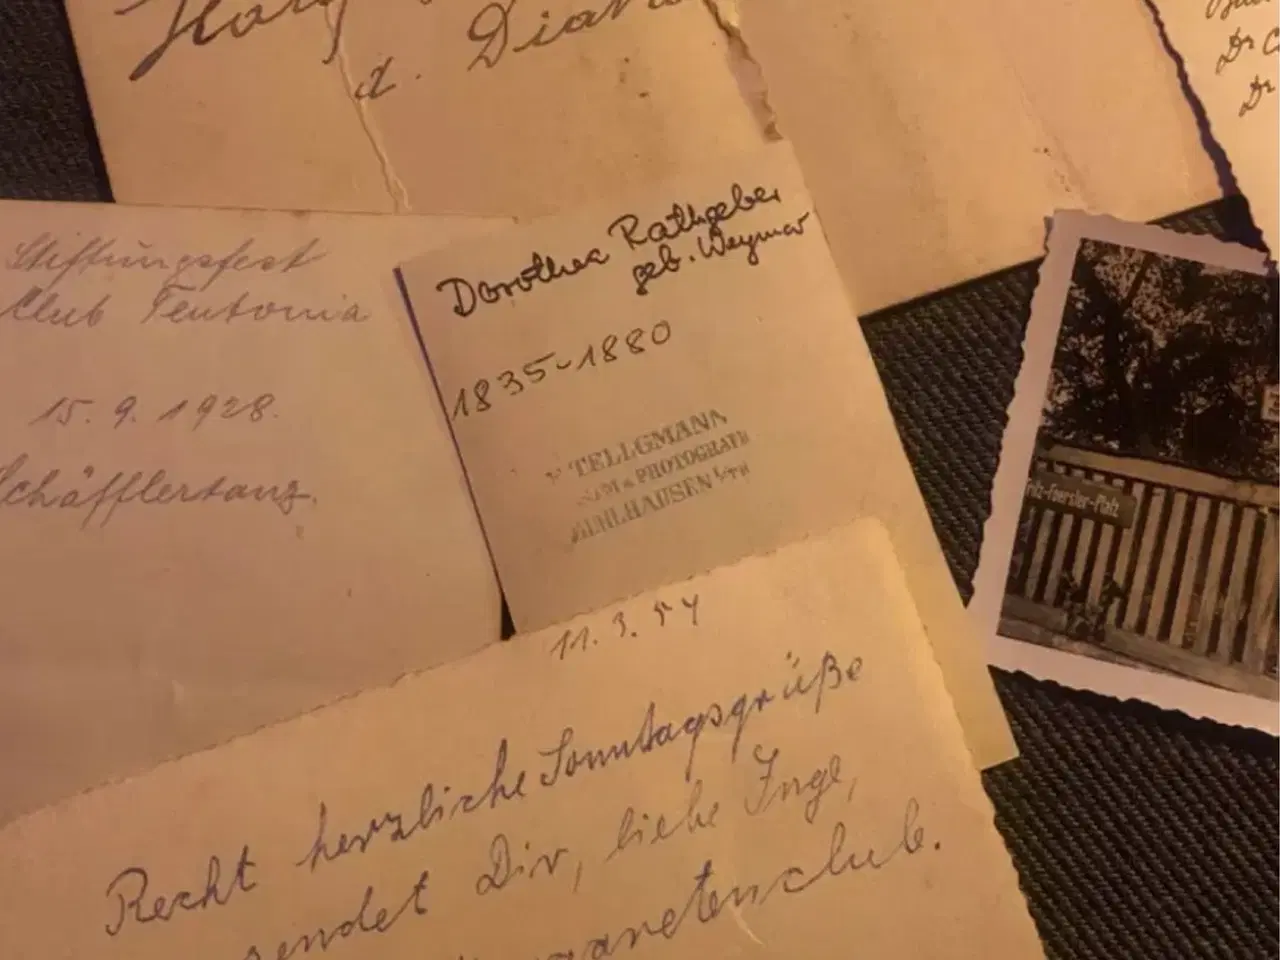 z. Diana
Dr
Dr
Stiftungsfest
Club Teutonia
15. 9. 1928.
Schäfflertanz.
Dorothea Rathgeber
geb. Weymar
1835-1880
TELLGMANN
PHOTOGRAPH
MÜHLHAUSEN i/TH
Fritz-Foerster-Platz
11. 3. 54
Recht herzliche Sonntagsgrüße
sendet Dir, liebe Inge,